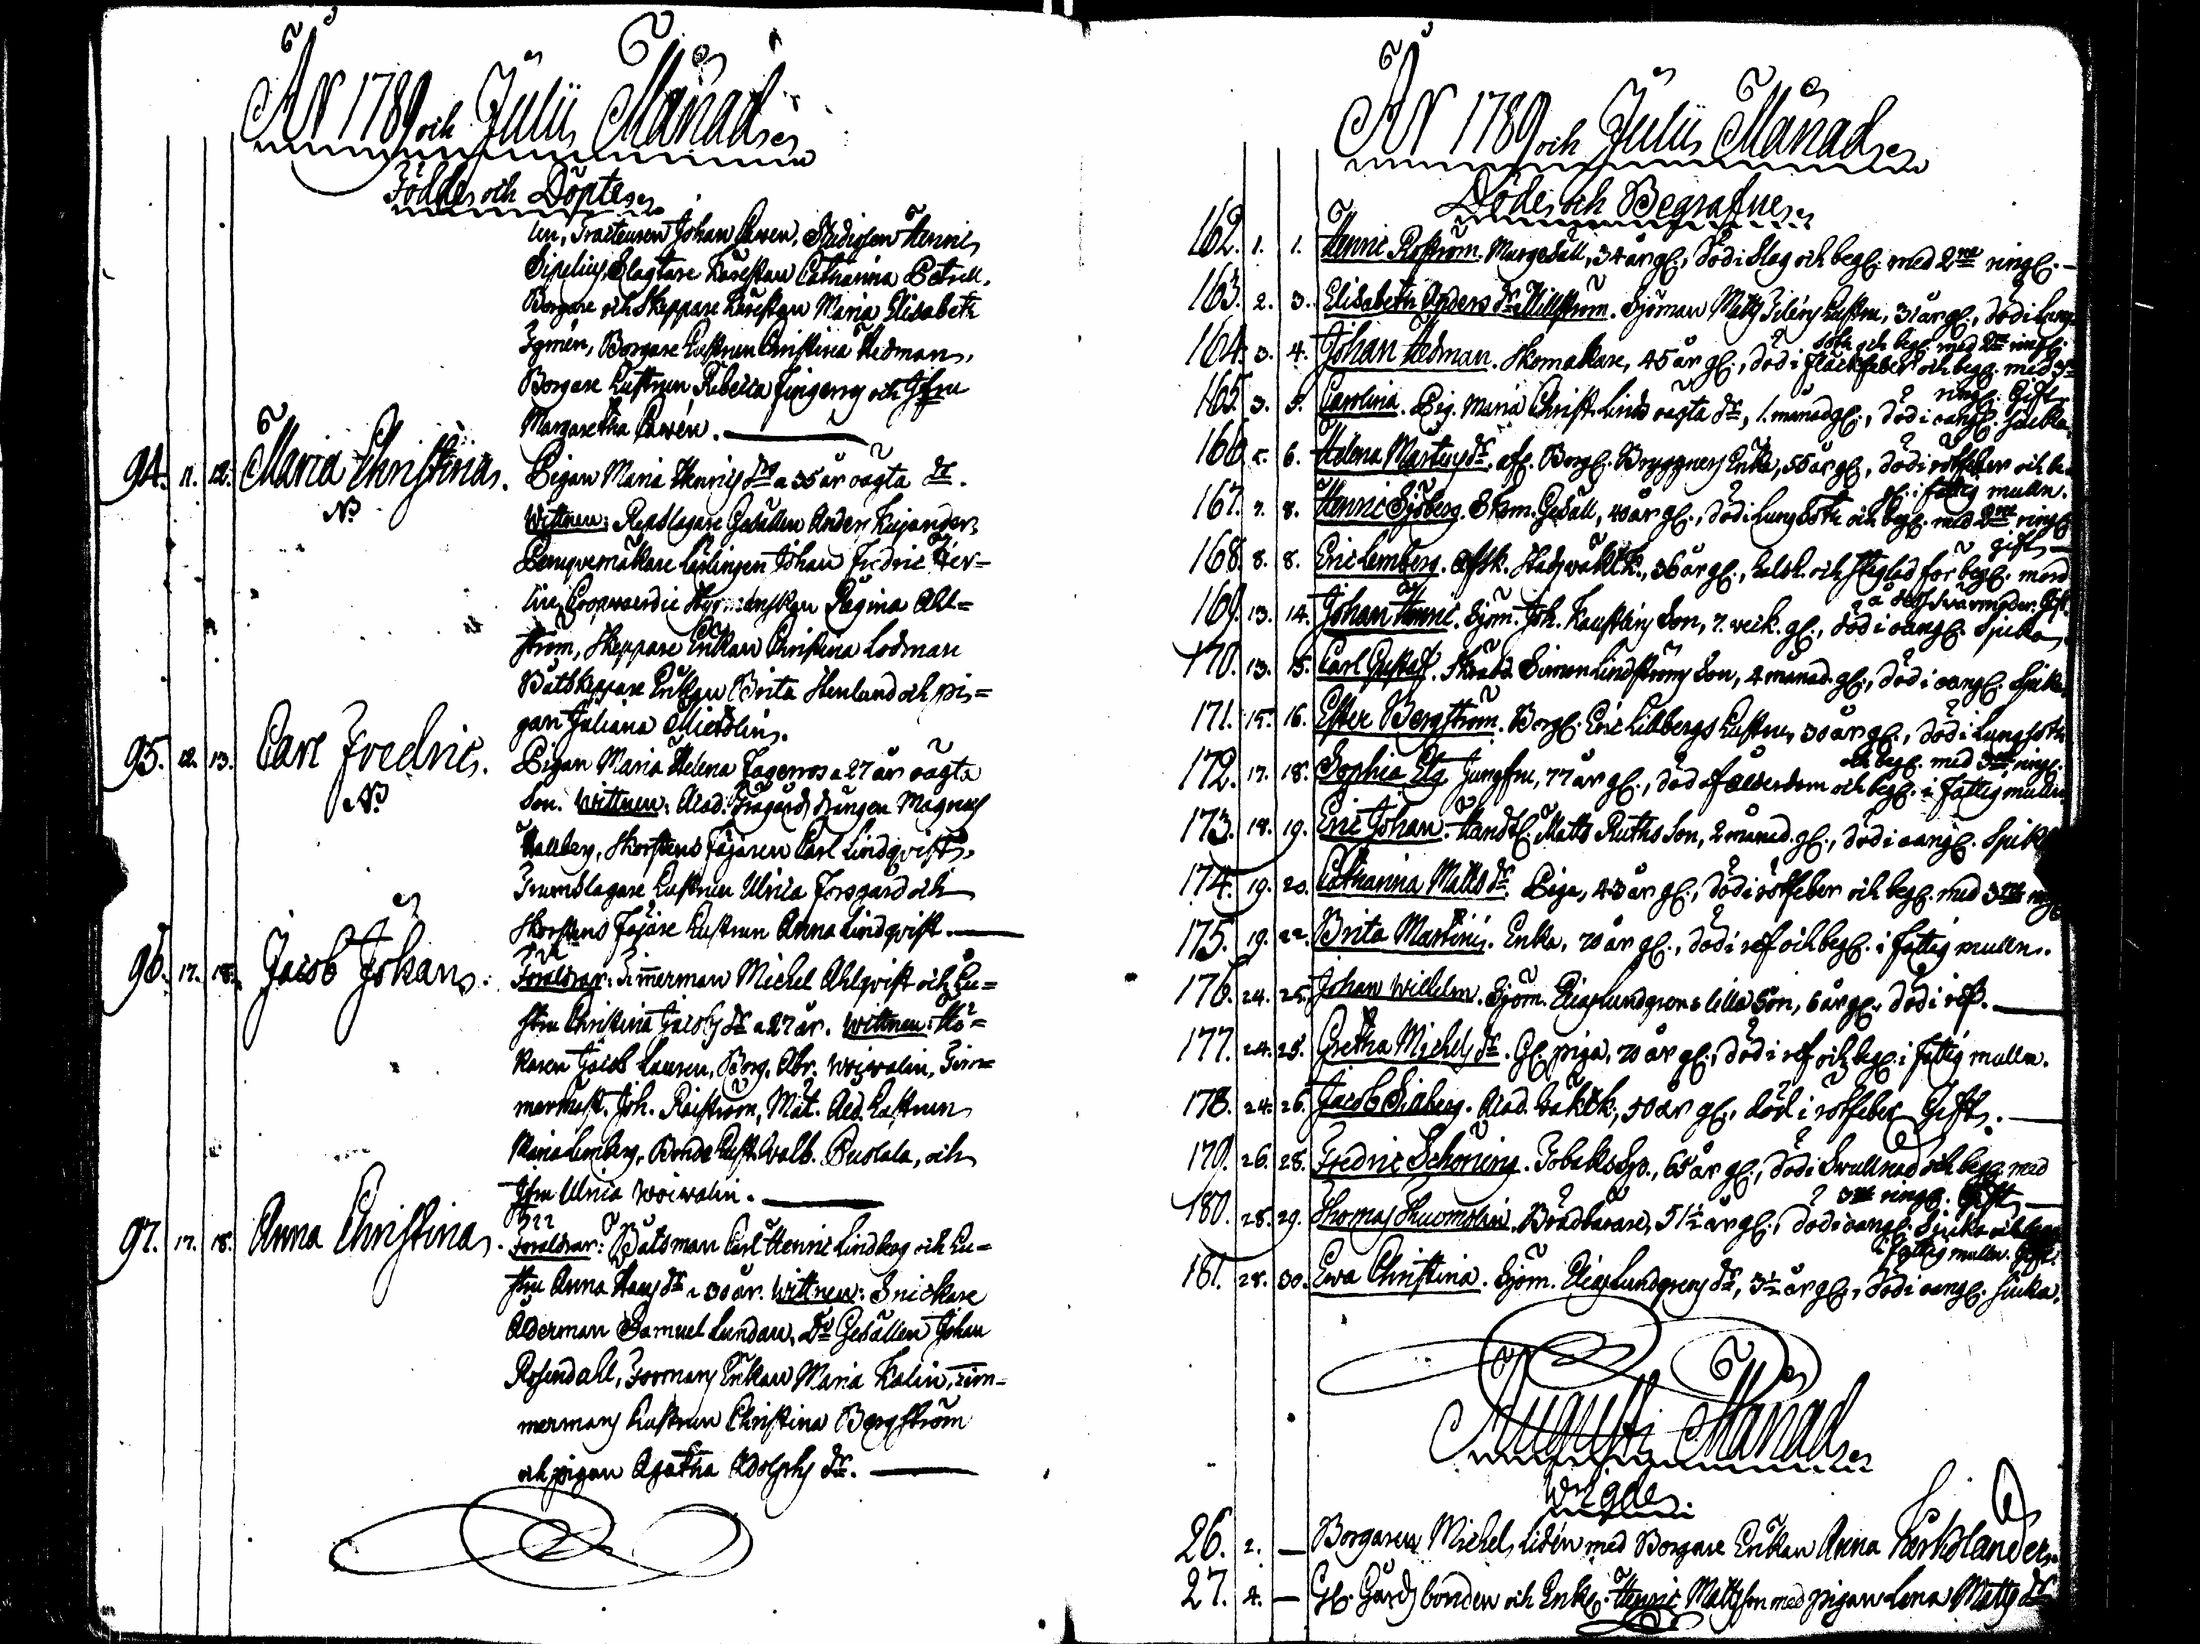 År 1789 och Julii Månad
Födde och Döpte
lin, Tracteuren Johan Cawen, Studiosen Henric
Sipelius, Slagtare hustrun Catharina Petrell,
Borgare och Skeppare hustrun Maria Elisabeth
Zymén, Borgare hustrun Christina Hedman,
Borgare hustrun Rebecca Fingerroos och Jfru
Margaretha Cawén.
94. 11. 12. Maria Christina. Pigan Maria Henrics dr a 35 år oägta dr.
N.
Wittnen: Repslagare Gesällen Anders
Lärlingen Johan Fredric
Coopvaerdie Styrmanskan Regina Ahl=
ström, Skeppare Enkan Christina Lodman
Båtskeppare Enkan Brita Henlund och pi=
gan Juliana
95. 12. 13. Carl Fredric. Pigan Maria Helena Fagerroos a 27 år oägta
N.
Son. Wittnen: Acad. Trägårds drängen Magnus
Hallberg, Skorstens fejaren Carl Lindqvist,
Trumslagare hustrun Ulrica Forsgård och
Skorstens Fejare hustrun Anna Lindqvist.
96. 17. 18. Jacob Johan. Föräldrar: Timmerman Michel Ahlqvist och hu=
stru Christina Jacobs dr a 27 år. Wittnen: Hö=
karen Jacob Laurén, Borg. Abr. Woivalin, Tim=
mermest. Joh. Råström, Mat. Ald. hustrun
Maria Limberg, Bonde hust. Walb. Puolala, och
Jfru Ulrica Woivalin.
97. 17. 18. Anna Christina. Föräldrar: Båtsman Carl Henric Lindberg och hu=
stru Anna Hans dr a 30 år. Wittnen: Snickare
Ålderman Samuel Lundan, Do Gesällen Johan
Rosendahl, Formans Enkan Maria Kalin, Tim=
mermans hustrun Christina Bergström
och pigan Agatha Adolphs dr.
År 1789 och Julii Månad
Döde och Begrafne
162. 1. 1. Henric Roström. Marge Säll, 34 år gl., död i slag och begr. med 2ne ring.
163. 2. 3. Elisabeth Anders dr Millström. Sjöman Matts hustru, 31 år gl., död i lung
sot och begr. med 2ne ring.
164. 3. 4. Johan Hedman. Skomakare, 45 år gl., död i fläckfeber och begr. med 3
ring. Gift.
165. 3. 5. Carolina. Pig. Maria Christ. Linds oägta dr, 1 månad gl., död i oang. sjukd.
166. 5. 6. Helena Martens dr. afl. Borg. Bryggners Enka, 55 år gl., död i rötfeber och be
gr. i fattig mulln.
167. 7. 8. Henric Sjöberg. Skom. Gesäll, 40 år gl., död i lungsot och begr. med 2ne ring.
gift
168. 8. 8. Eric Lemberg. Afsk. Stads waktk., 36 år gl., halsh. och steglad för beg. mord
å des Svärmoder. Gift.
169. 13. 14. Johan Henric. Sjöm. Joh. Kaustins Son, 7 veck. gl., död i oang. Sjuka
170. 13. 15. Carl Gustaf. Skrädd. Simon Lindströms Son, 4 månad. gl., död i oang. Sjuka
171. 15. 16. Ester Bergström. Borg. Eric Lillbergs hustru, 30 år gl., död i lungsot
och begr. med 3ne ring.
172. 17. 18. Sophia Elg. Jungfru, 77 år gl., död af ålderdom och begr. i fattig mulln
173. 18. 19. Eric Johan. Handl. Matts Ruths Son, 2 månad. gl., död i oang. Sjuk
174. 19. 20. Catharina Matts dr. Piga, 43 år gl., död i rötfeber och begr. med 3ne ring
175. 19. 22. Brita Martini. Enka, 70 år gl., död i ref och begr. i fattig mulln.
176. 24. 25. Johan Wilhelm. Sjöm. Elias Lundgrens lilla Son, 6 år gl. död i ref.
177. 24. 25. Gretha Michels dr. Gl. piga, 70 år gl., död i ref och begr. i fattig mulln.
178. 24. 26. Jacob Siaberg. Acad. Waktk., 50 år gl., död i rötfeber Gift.
179. 26. 28. Fredric Schöning. Tobaks Sp., 65 år gl., död i swullnad och begr. med
3ne ring. Gift
180. 28. 29. Thomas Brädbärare, 51 1/2 år gl., död i oang. Sjuka och begr.
i fattig mulln. Gift.
181. 28. 30. Ewa Christina. Sjöm. Elias Lundgrens dr, 3 1/2 år gl., död i oang. sjuka.
Augusti Månad
Wigde.
26. 2. — Borgaren Michel Lidén med Borgare Enkan Anna Kerkolander.
27. 4. — Gårds bonden och Enkl. Henric Mattsson med pigan Lena Matts dr